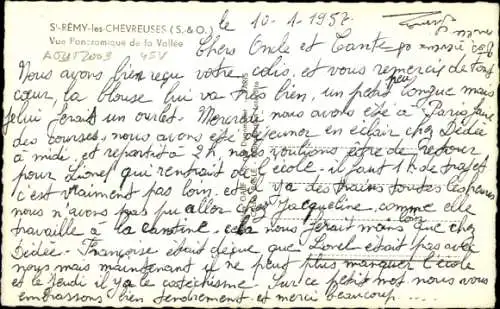 St-RÉMY-les-CHEVREUSES (S.-&-O.)
Vue Panoramique de la Vallée
AOUT2003 45V
le 10-1-1957
Chers Oncle et Tante
Nous avons bien reçu votre colis, et vous remercie de tout
cœur, la blouse lui va très bien, un petit peu longue mais
je lui ferai un ourlet. Mercredi nous avons été à Paris faire
des courses, nous avons été déjeuner en éclair chez Dédée
à midi, et repartit à 2h, nous voulions être de retour
pour Lionel qui rentrait de l'école, il faut 1h de trajet
c'est vraiment pas loin, et il y a des trains toutes les heures
nous n'avons pas pu aller chez Jacqueline, comme elle
travaille à la cantine, cela nous ferait moins loin que chez
Dédée. Françoise était déçue, que Lionel était pas avec
nous mais maintenant il ne peut plus manquer l'école
et le jeudi il y a le catéchisme. Sur ce petit mot nous vous
embrassons bien tendrement et merci beaucoup ....